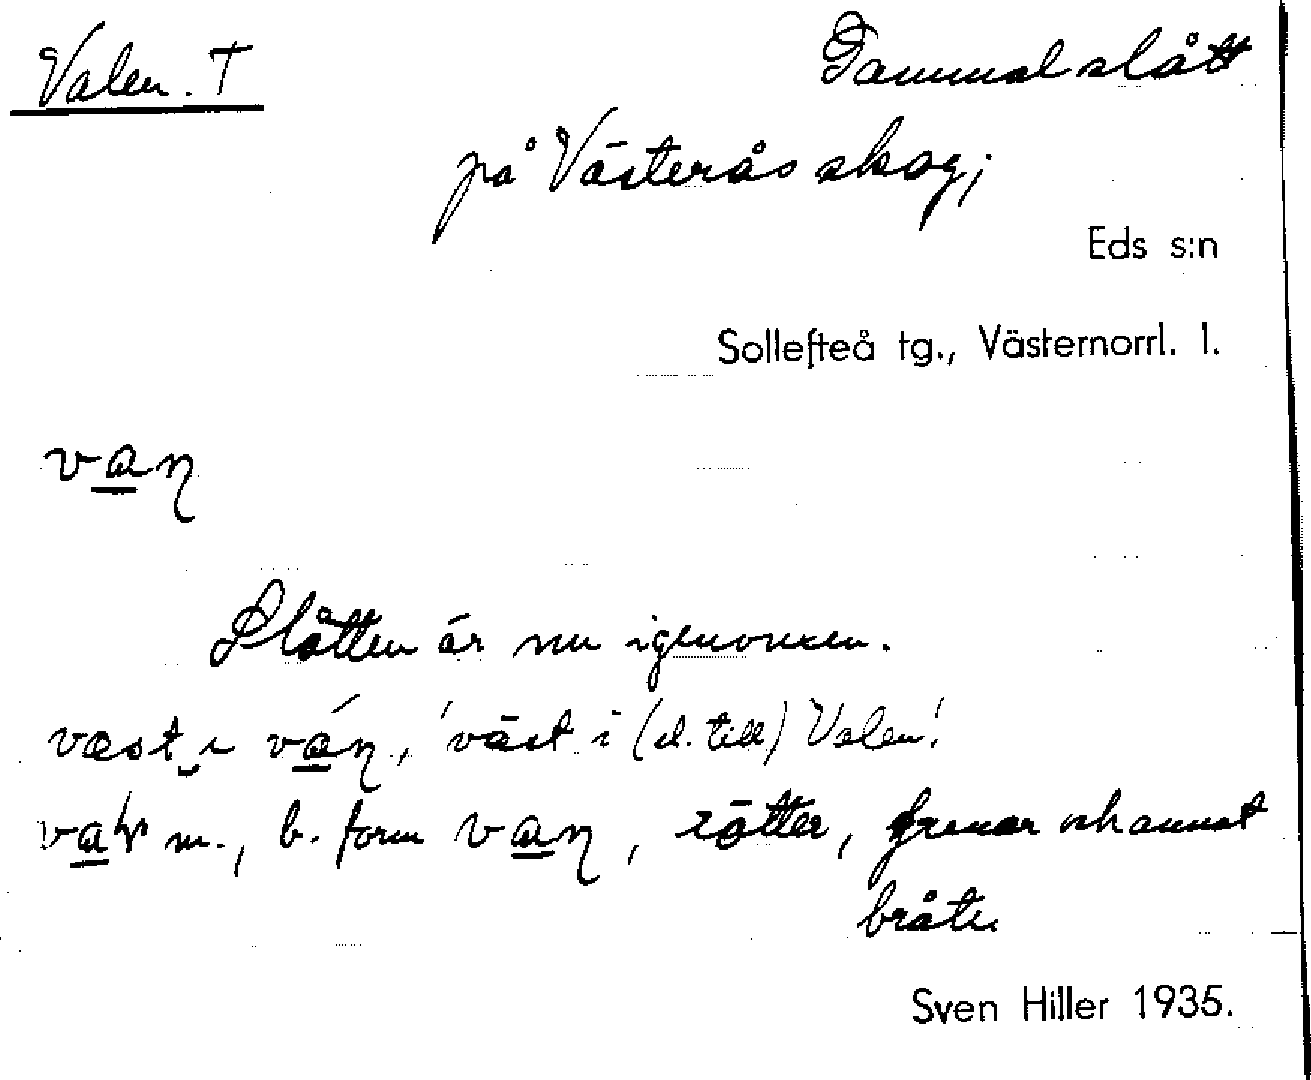 Valen. T
Gammal slått
på Västerås skog;
Eds s:n
Sollefteå tg., Västernorrl. l.
vaɳ
Slåtten är nu igenvuxen.
væst i váɳ, 'väst i (el. till) Valen'.
m., b. form vaɳ, rötter, grenar och annat
bråte
Sven Hiller 1935.